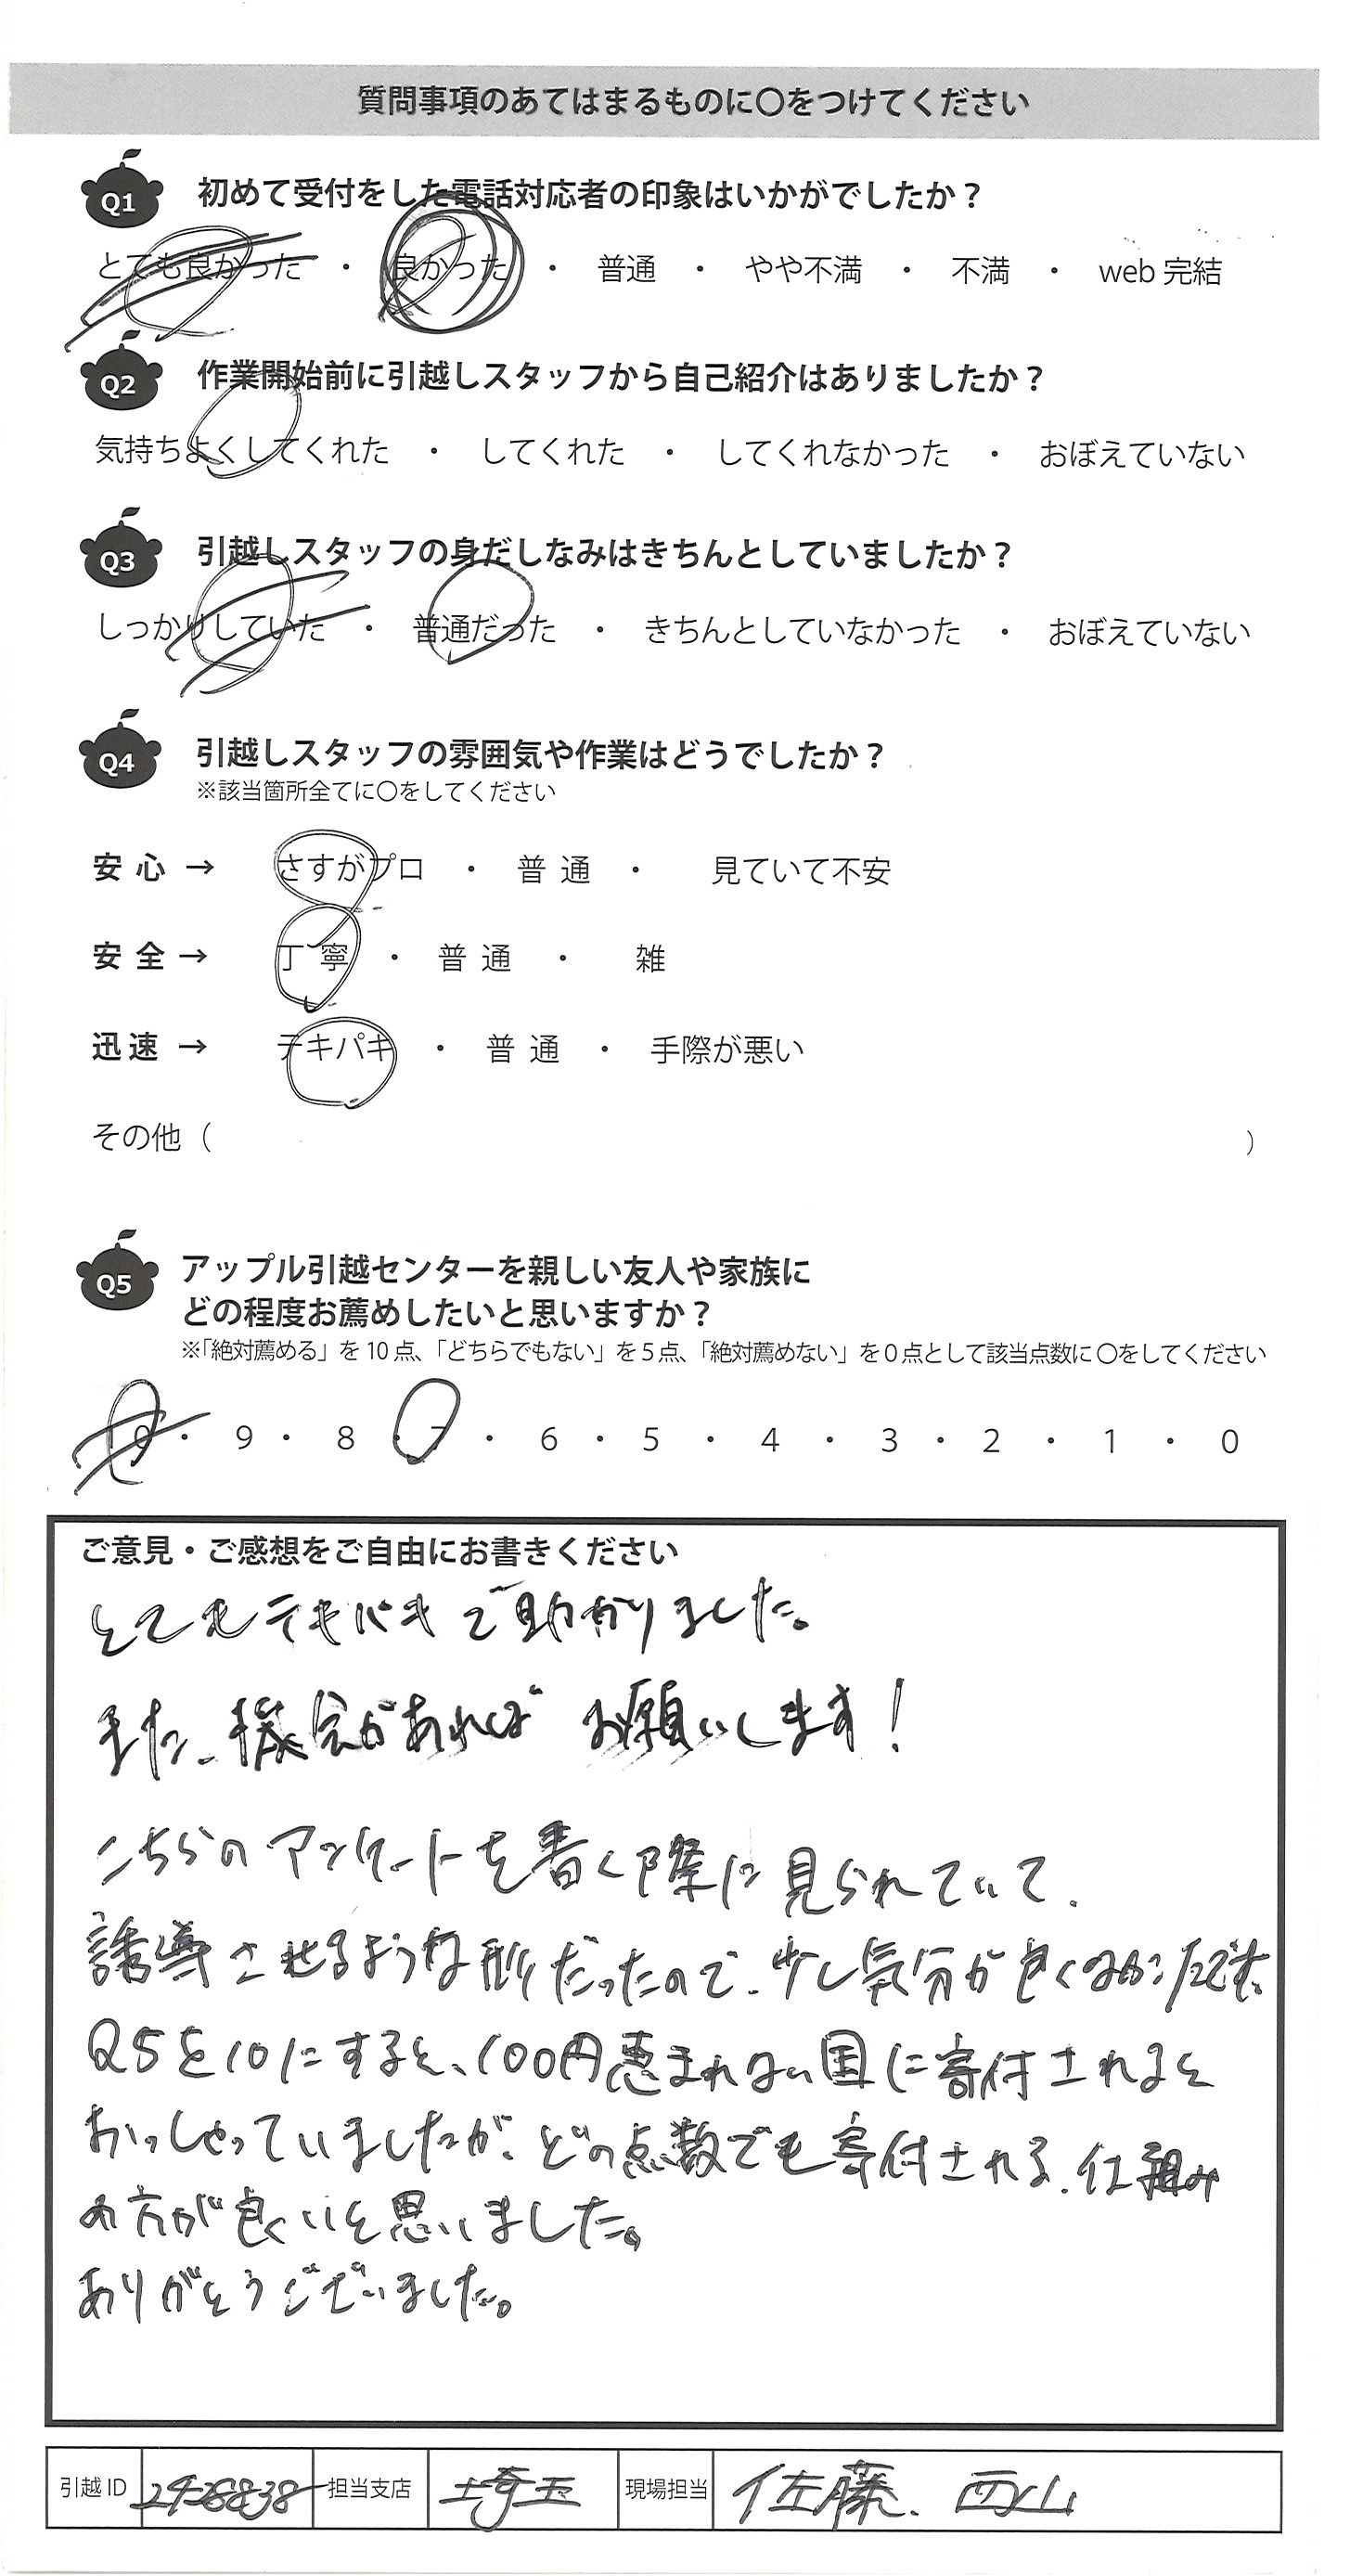 質問事項のあてはまるものに〇をつけてください
Q1 初めて受付をした電話対応者の印象はいかがでしたか？
とても良かった ・ 良かった ・ 普通 ・ やや不満 ・ 不満 ・ web 完結
Q2 作業開始前に引越しスタッフから自己紹介はありましたか？
気持ちよくしてくれた ・ してくれた ・ してくれなかった ・ おぼえていない
Q3 引越しスタッフの身だしなみはきちんとしていましたか？
しっかりしていた ・ 普通だった ・ きちんとしていなかった ・ おぼえていない
Q4 引越しスタッフの雰囲気や作業はどうでしたか？
※該当箇所全てに〇をしてください
安心 → さすがプロ ・ 普通 ・ 見ていて不安
安全 → 丁寧 ・ 普通 ・ 雑
迅速 → テキパキ ・ 普通 ・ 手際が悪い
その他（ ）
Q5 アップル引越センターを親しい友人や家族に
どの程度お薦めしたいと思いますか？
※「絶対薦める」を 10 点、「どちらでもない」を 5 点、「絶対薦めない」を 0 点として該当点数に 〇をしてください
10 ・ 9 ・ 8 ・ 7 ・ 6 ・ 5 ・ 4 ・ 3 ・ 2 ・ 1 ・ 0
ご意見・ご感想をご自由にお書きください
とてもテキパキで助かりました。
また、機会があればお願いします！
こちらのアンケートを書く際に見られていて、
誘導させるような形だったので、少し気分が良くなかったです。
Q5を10にすると、100円恵まれない国に寄付されると
おっしゃっていましたが、どの点数でも寄付される、仕組み
の方が良いと思いました。
ありがとうございました。
引越 ID 担当支店 埼玉 現場担当 佐藤、西山